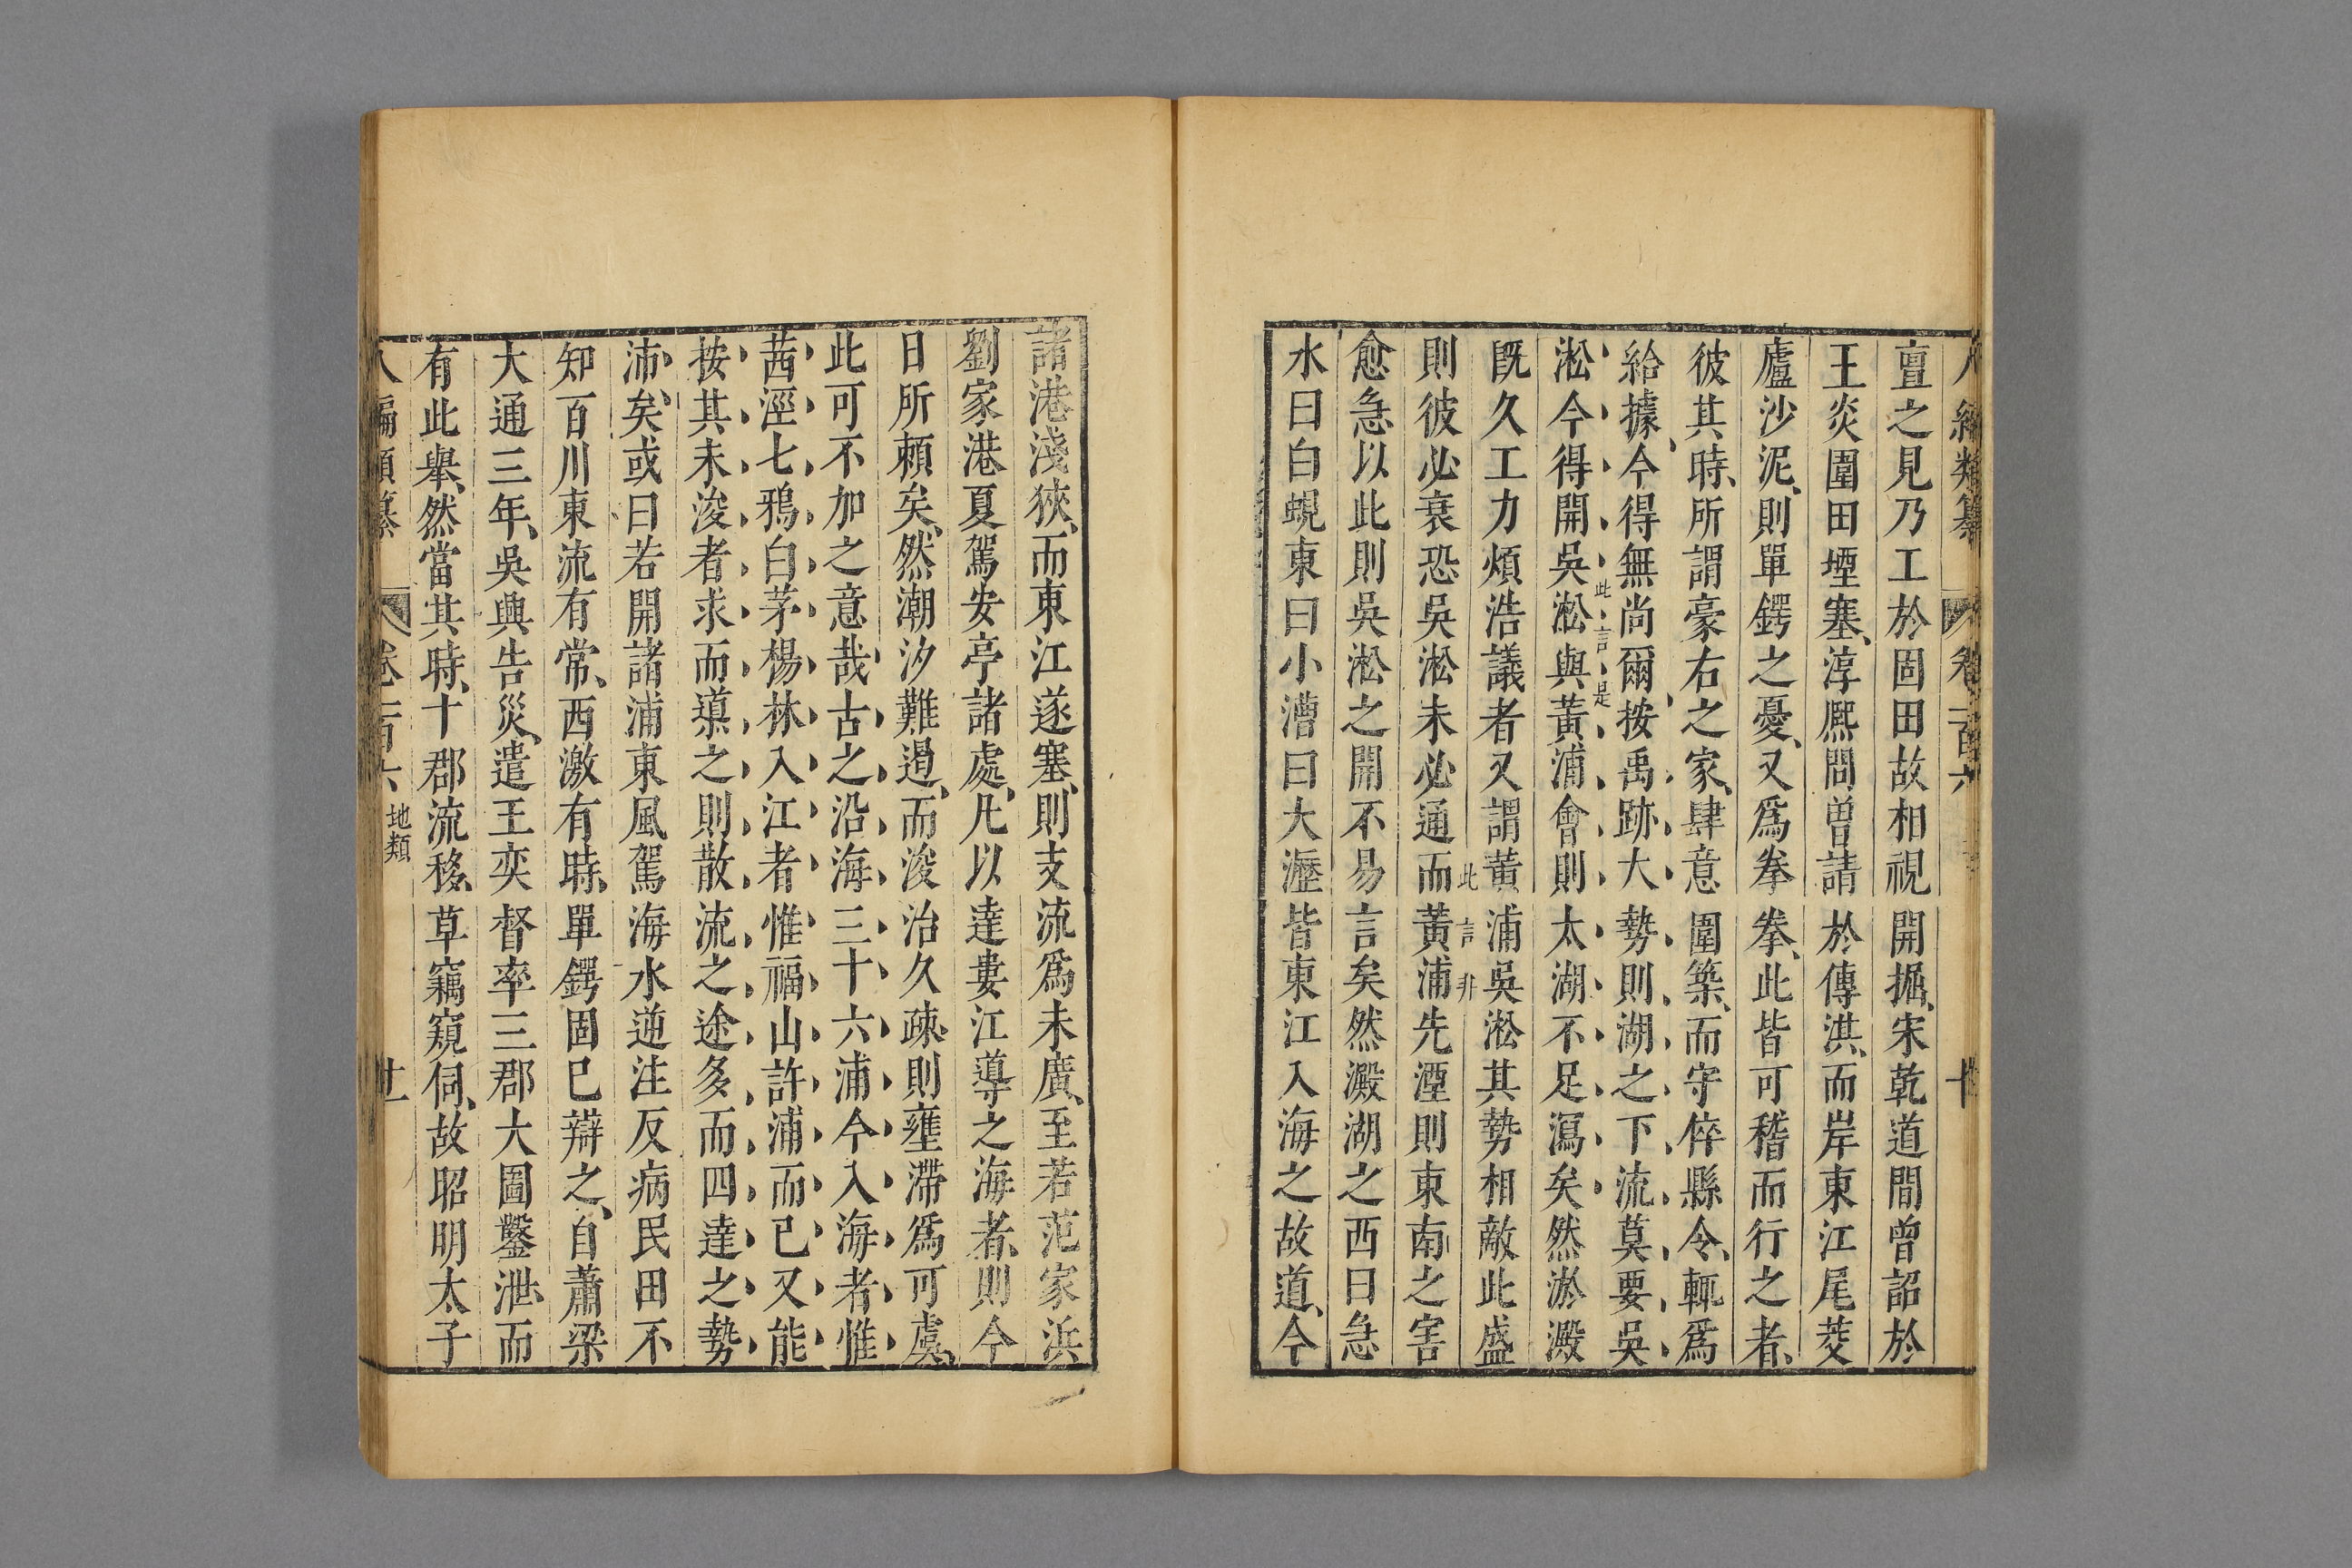 八編類纂 卷一百六 十
亶之見乃工於固田故相視開掘、宋乾道間曾詔於
王炎圍田堙塞、淳熈間曾請於傅淇、而岸東江尾茭
廬沙泥、則單鍔之憂、又爲拳拳、此皆可稽而行之者、
彼其時、所謂豪右之家、肆意圍築、而守倅縣令、輒爲
給據、今得無尚爾、按禹跡大勢則湖之下流莫要吳
淞今得開吳淞與黃浦會則太湖不足瀉矣然淤澱
此言是
旣久工力煩浩議者又謂黄浦吳淞其勢相敵此盛
則彼必衰恐吳淞未必通而黃浦先湮則東南之害
此言非
愈急以此則吳淞之開不易言矣然澱湖之西曰急
水曰白蜆東曰小漕曰大瀝皆東江入海之故道、今
諸港淺狹、而東江遂塞、則支流爲未廣、至若范家浜
劉家港夏駕安亭諸處、凡以達婁江導之海者、則今
日所頼矣、然潮汐難遏、而浚治久疎則壅滯爲可虞、
此可不加之意哉古之沿海三十六浦今入海者惟
茜涇七鴉白茅楊林入江者惟福山許浦而已又能
按其未浚者求而導之則散流之途多而四達之勢
沛矣或曰若開諸浦東風駕海水逆注反病民田不
知百川東流有常、西激有時、單鍔固已辯之、自蕭梁
大通三年、吳興告災、遣王奕督率三郡大圖鑿泄而
有此舉、然當其時、十郡流移、草竊窺伺、故昭明太子
八編類纂 卷一百六 地類 廿